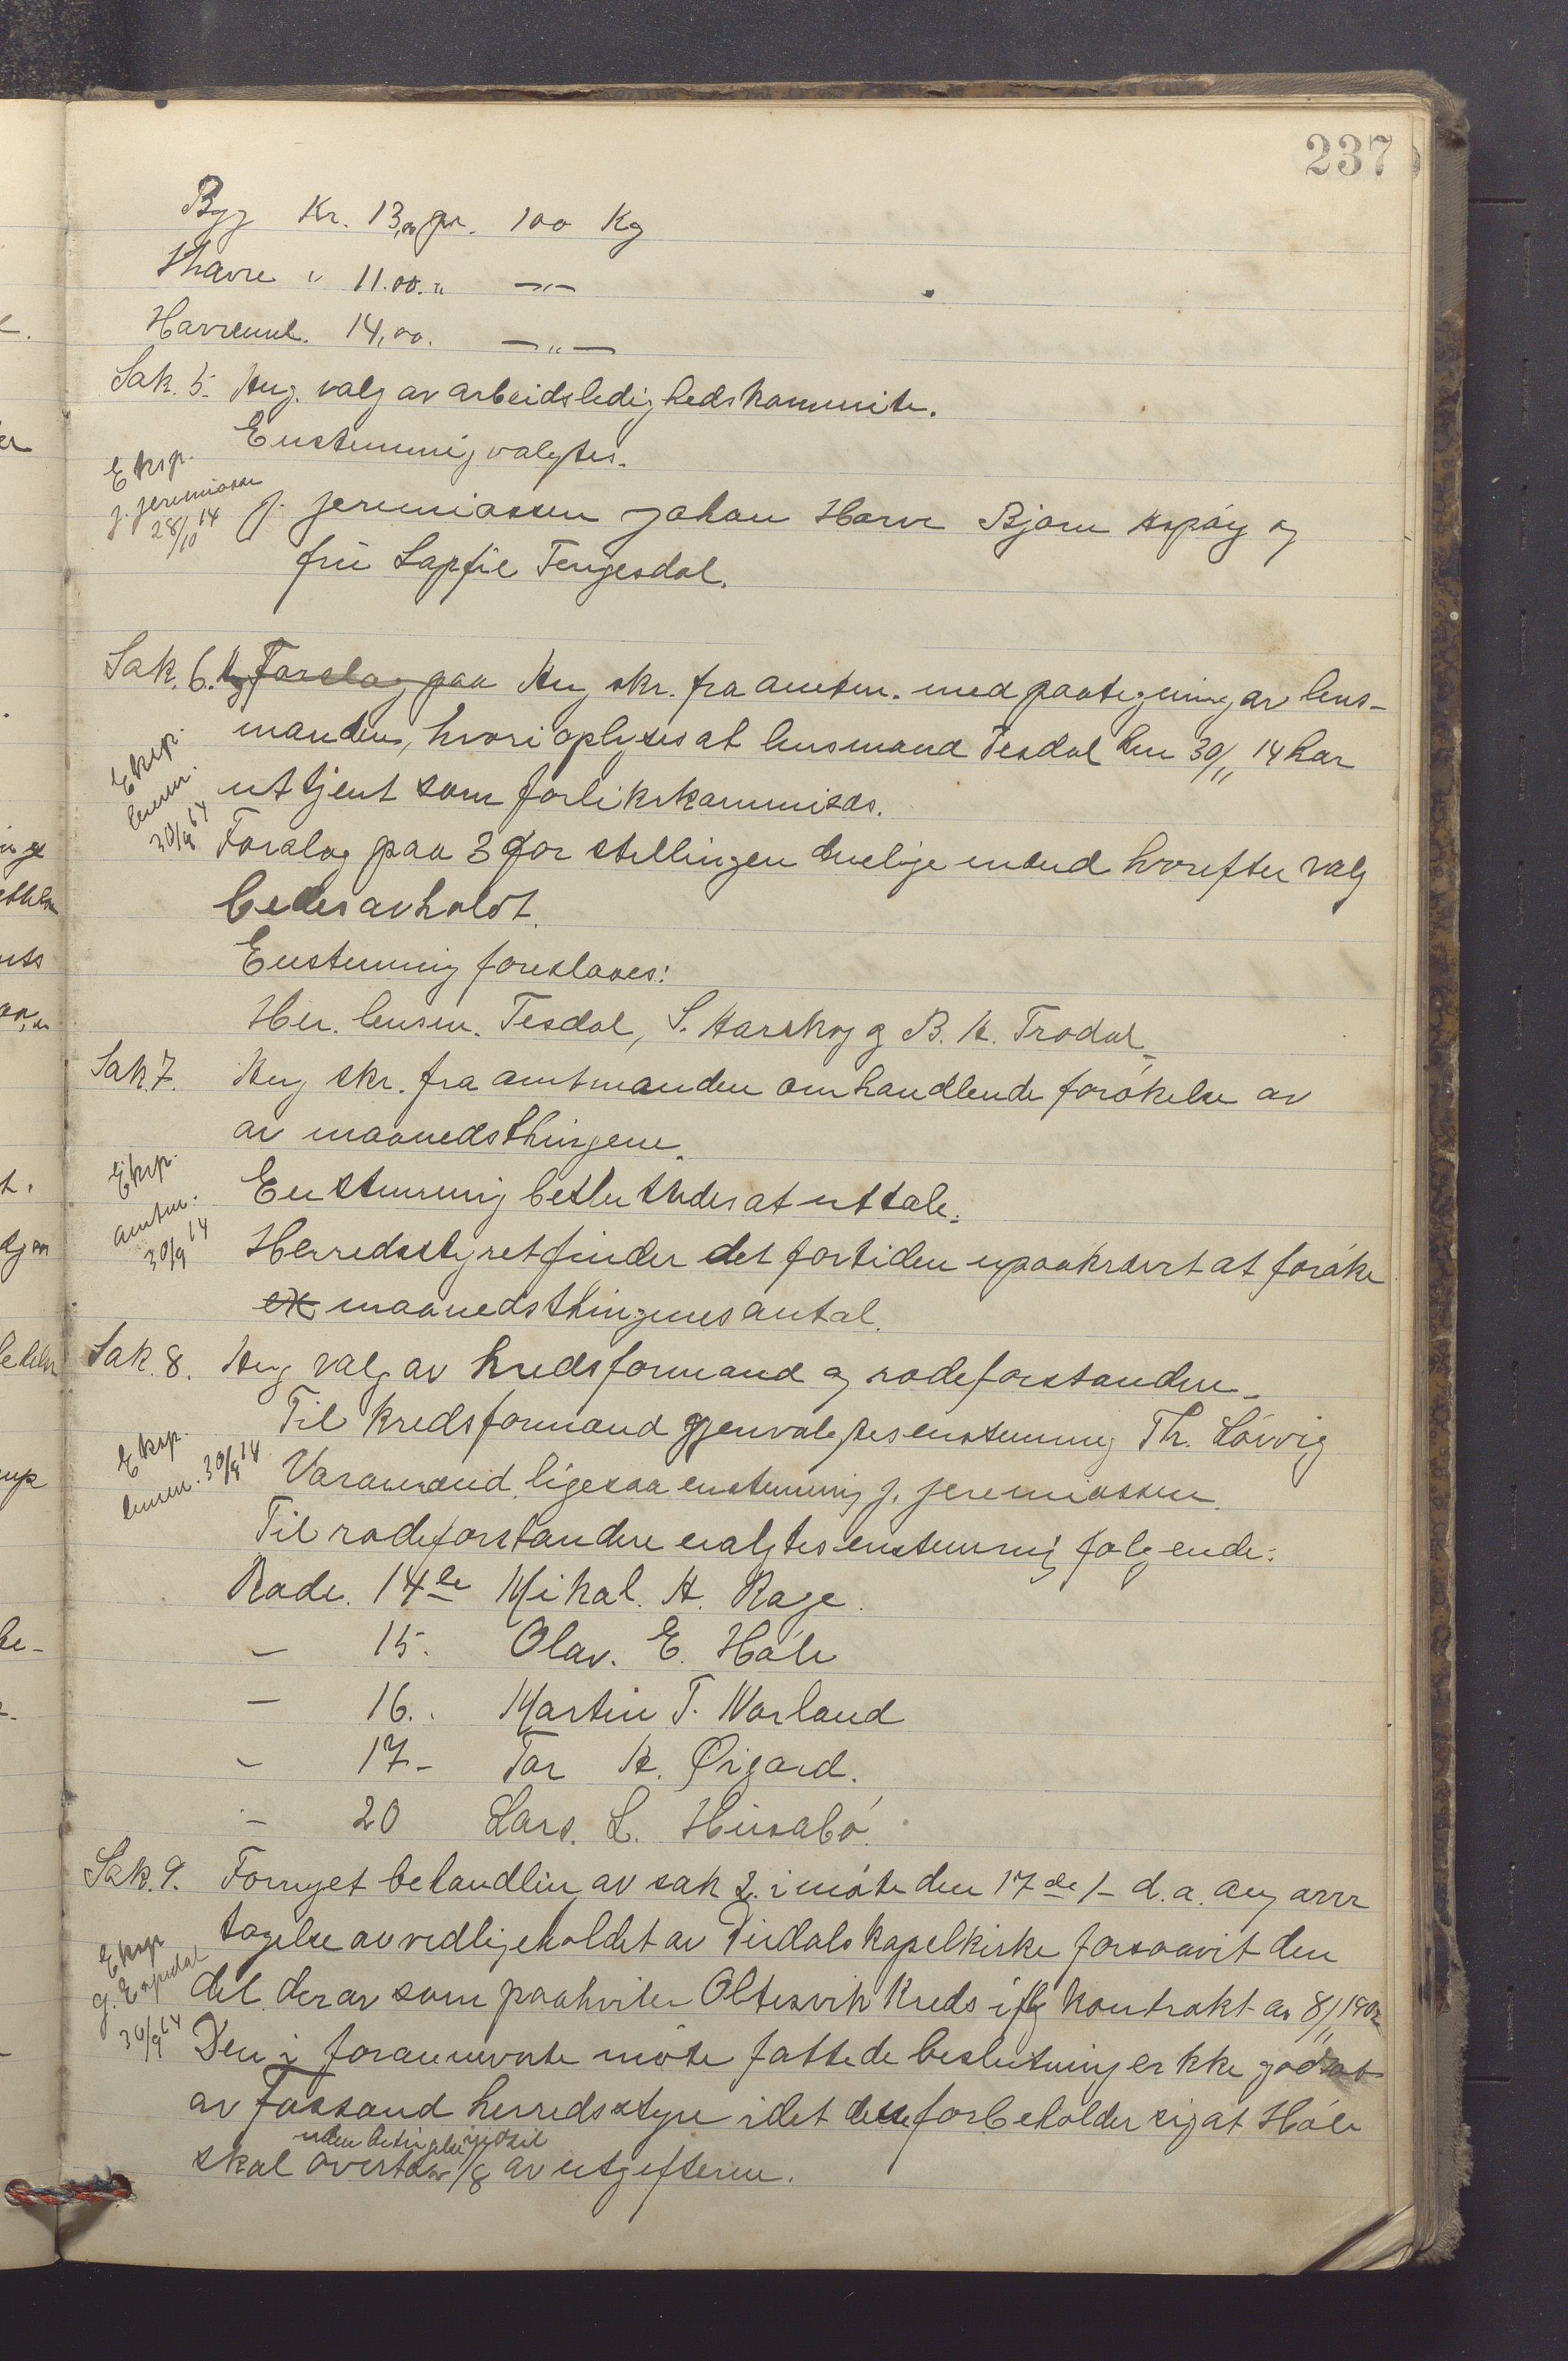 237
Byg Kr. 13,00 pr. 100 Kg
Havre " 11.00. " —"—
Havremel. 14,00. —"—
Sak. 5. Ang. valg av arbeidsledighedskommite.
Enstemmig valgtes.
Eksp.
J. Jeremiassen
28/10 14
J. Jeremiassen Johan Harve Bjørn Aspøy og
frü Tengesdal.
Sak. 6. Ang Forslag paa Ang skr. fra amtm. med paategning av lens-
manden, hvori oplyses at lensmand Tesdal den 30/11 14 har
uttjent som forlikskommisær.
Eksp.
lensm.
30/9 14
Forslag paa 3 for stillingen duelige mænd hvorefter valg
bedes avholdt.
Enstemmig foreslaaes:
Hr. lensm. Tesdal, S. Harskog og B. K. Trodal
Sak. 7. Ang skr. fra amtmanden omhandlende forøkelse av
av maanedsthingene.
Eksp.
amtm.
30/9 14
Enstemmig besluttedes at uttale:
Herredsstyret finder det fortiden upaakrævet at forøke
maanedsthingenes antal.
Sak 8. Ang valg av kredsformand og rodeforstandere
Til kredsformand gjenvalgtes enstemmig Th. Løvvig
Eksp.
lensm. 30/9 14
Varamand ligesaa enstemmig J. Jeremiassen.
Til rodeforstandere valgtes enstemmig følgende:
Rode. 14de Mikal. H. Rage.
— 15. Olav. E. Høle
— 16. Martin T. Norland
— 17 - Tor K. Øigard.
— 20 Lars. L. Hüsabø.
Sak. 9. Fornyet behandling av sak 2. i møte den 17de /- d.a. ang over
tagelse av vedligeholdet av Dirdals kapelkirke forsaavit den
Eksp
30/9 14
del derav som paahviler Oltesvik Kreds ifl kontrakt av 8/11 1902
Den i forannævnte møte fattede beslutning er ikke godtat
av Fossand herredsstyre idet dette forbeholder sig at Høle
uten betingelse
skal overta /8 av utgifterne.